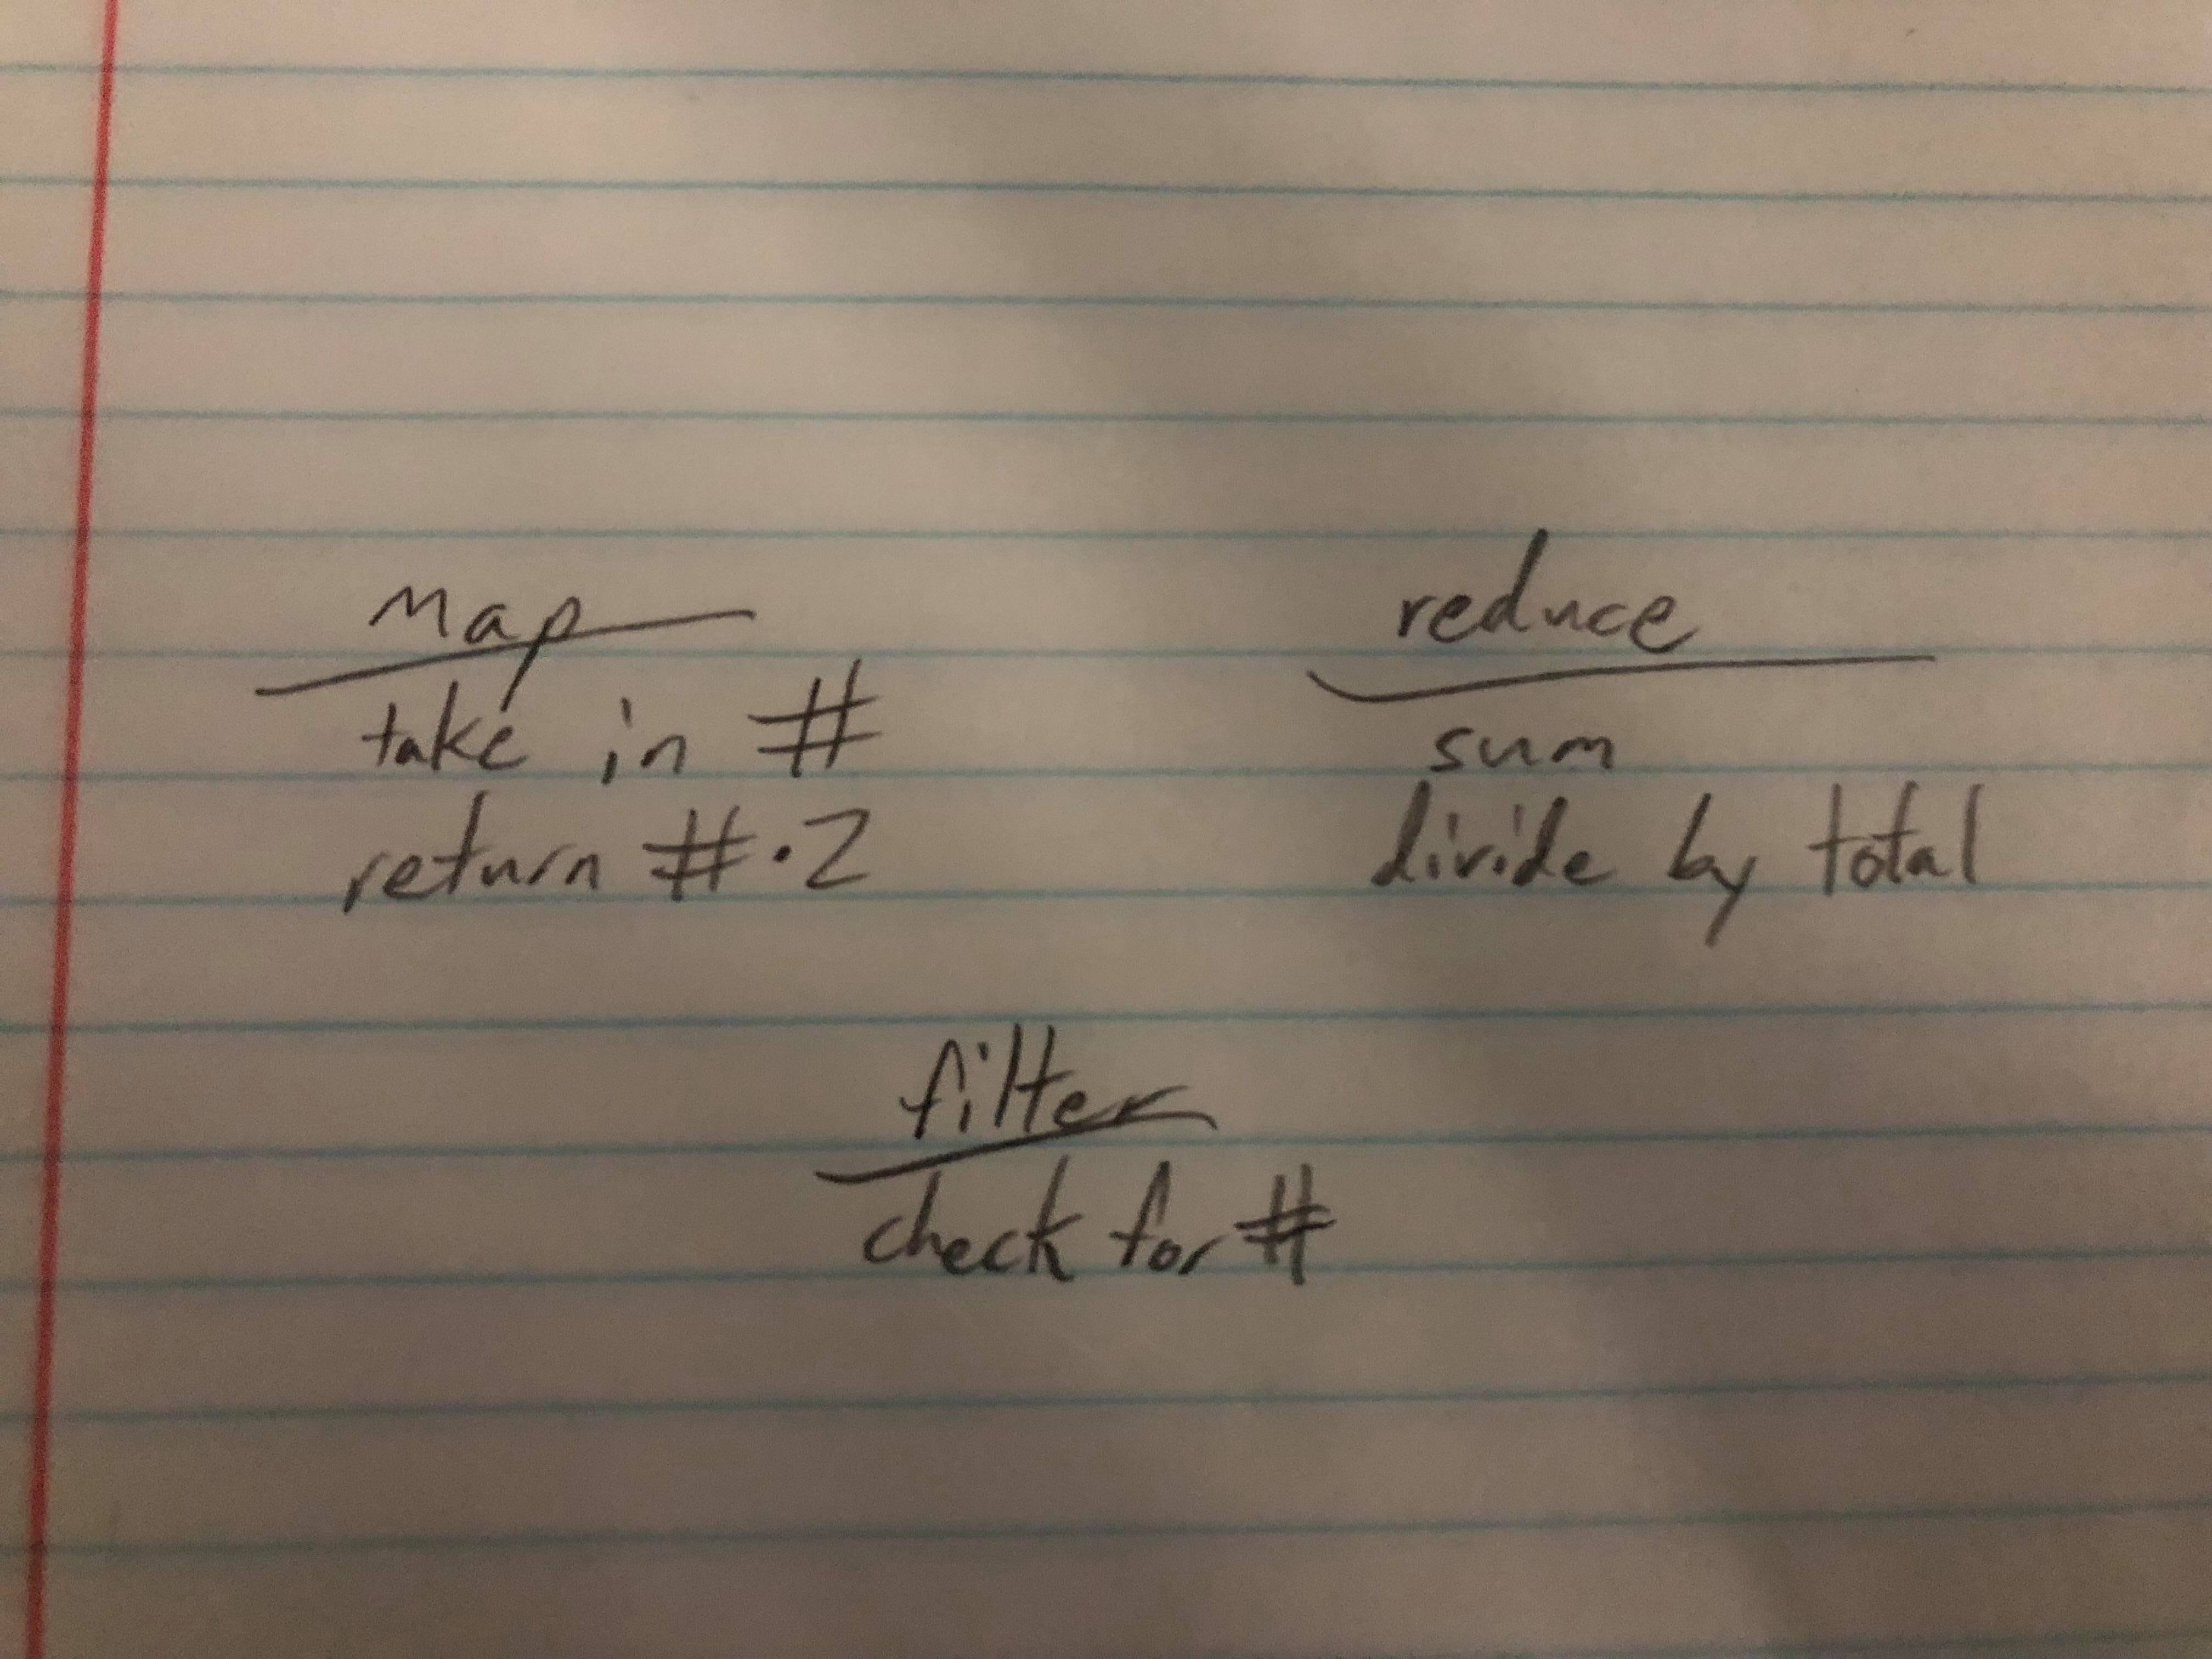 map
take in #
return #·2
reduce
sum
divide by total
filter
check for #